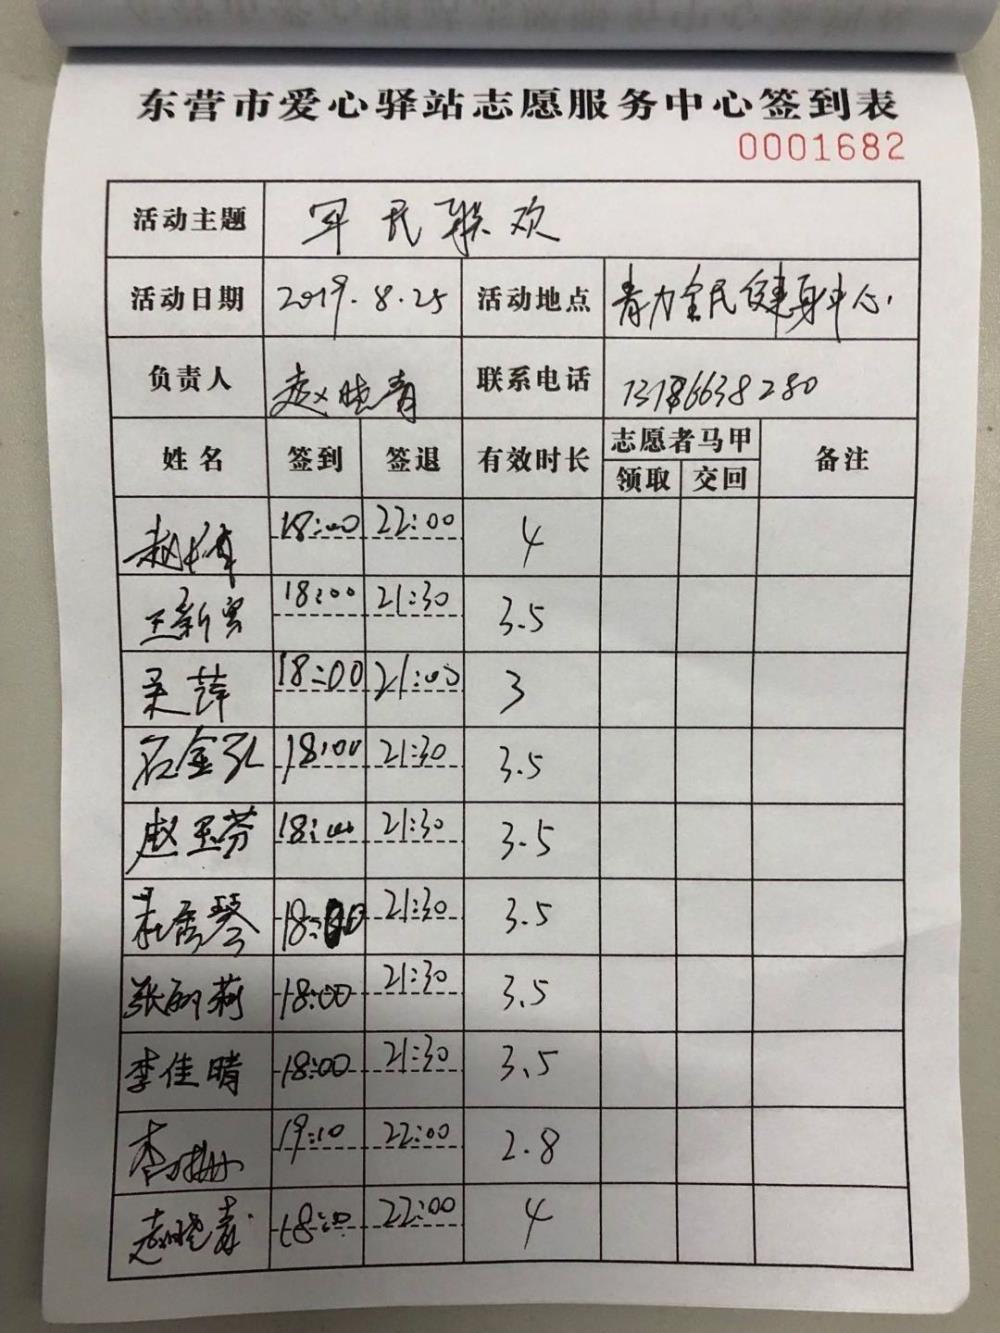 东营市爱心驿站志愿服务中心签到表
0001682
活动主题 军民联欢
活动日期 2019.8.25 活动地点 青力全民健身中心
负责人 赵晓青 联系电话 13176638280
姓名 签到 签退 有效时长 志愿者马甲 备注
领取 交回
18:00 22:00 4
王新 18:00 21:30 3.5
18:00 21:00 3
石金 18:00 21:30 3.5
赵玉芬 18:00 21:30 3.5
杜秀琴 18:00 21:30 3.5
张丽莉 18:00 21:30 3.5
李佳晴 18:00 21:30 3.5
19:10 22:00 2.8
赵晓青 18:00 22:00 4